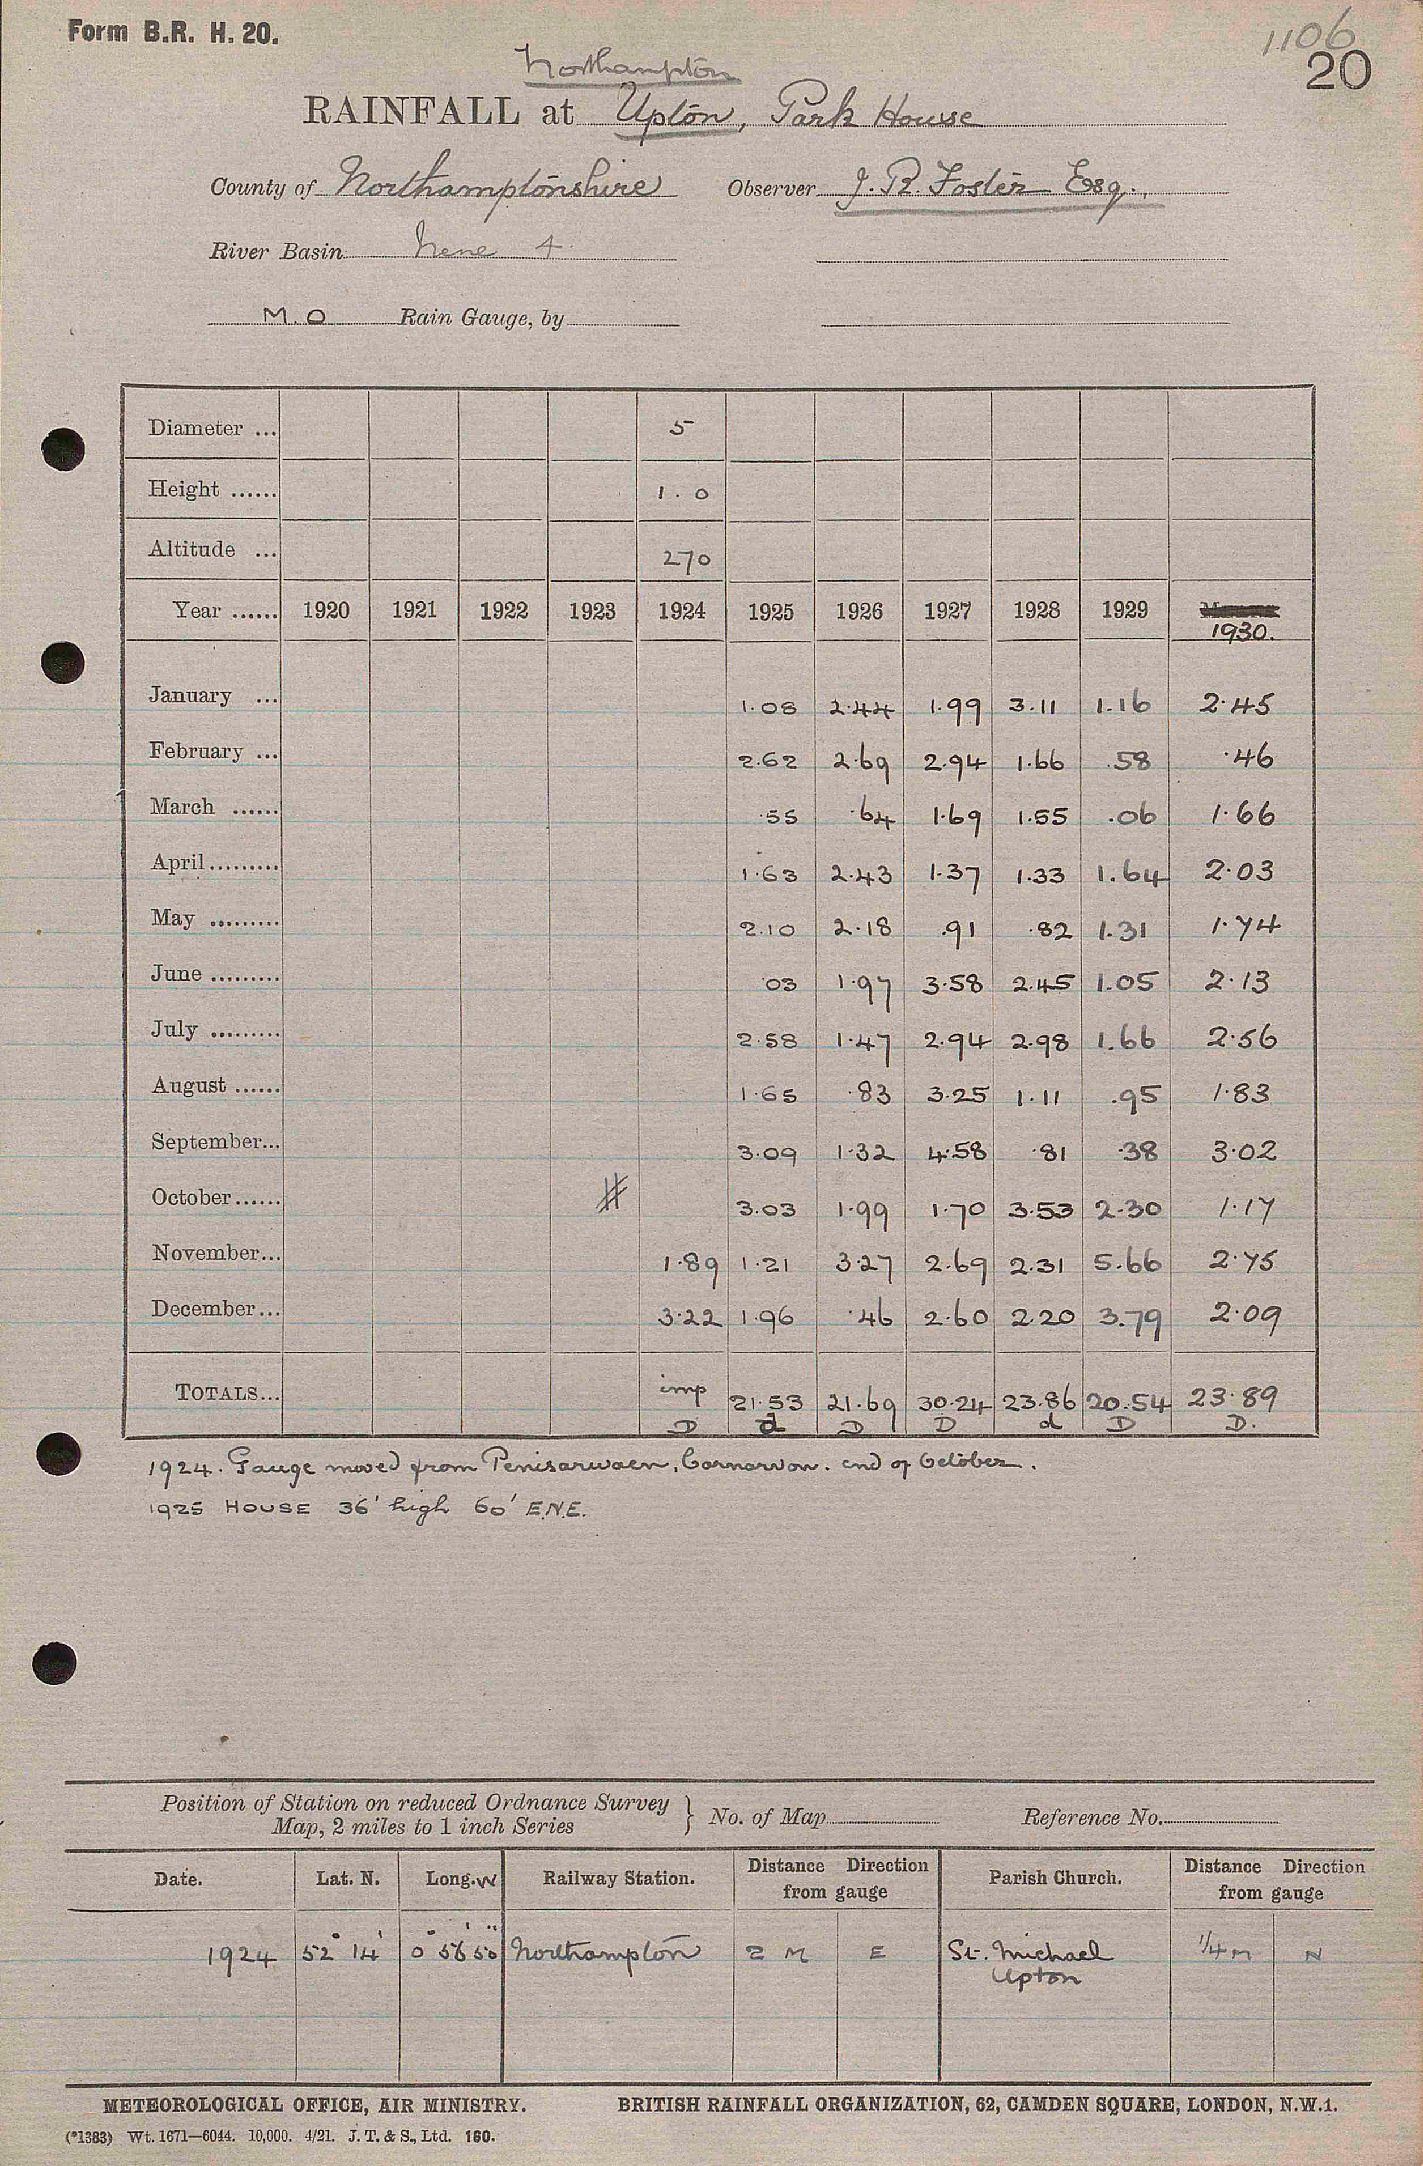 Form B.R. H. 20.
1106
20
Northampton
RAINFALL at Upton, Park House
County of Northamptonshire Observer J. R. Foster Esq.
River Basin Nene 4
M.O Rain Gauge, by
Diameter ... 5
Height ...... 1.0
Altitude ... 270
Year ...... 1920 1921 1922 1923 1924 1925 1926 1927 1928 1929 1930.
January ... 1.08 2.44 1.99 3.11 1.16 2.45
February ... 2.62 2.69 2.94 1.66 .58 .46
March ...... .55 .64 1.69 1.55 .06 1.66
April......... 1.63 2.43 1.37 1.33 1.64 2.03
May ......... 2.10 2.18 .91 .82 1.31 1.74
June ......... 03 1.97 3.58 2.45 1.05 2.13
July ......... 2.58 1.47 2.94 2.98 1.66 2.56
August ...... 1.65 .83 3.25 1.11 .95 1.83
September... 3.09 1.32 4.58 .81 .38 3.02
October...... # 3.03 1.99 1.70 3.53 2.30 1.17
November... 1.89 1.21 3.27 2.69 2.31 5.66 2.75
December... 3.22 1.96 .46 2.60 2.20 3.79 2.09
TOTALS... imp 21.53 21.69 30.24 23.86 20.54 23.89
D d D D d D D.
1924. Gauge moved from Penisarwaen, Carnarvon. end of October.
1925 HOUSE 36' high 60' E.N.E.
Position of Station on reduced Ordnance Survey Map, 2 miles to 1 inch Series } No. of Map Reference No.
Date. Lat. N. Long. W Railway Station. Distance Direction from gauge Parish Church. Distance Direction from gauge
1924 52° 14' 0° 56' 50" Northampton 2 M E St. Michael 1/4 M N
Upton
METEOROLOGICAL OFFICE, AIR MINISTRY. BRITISH RAINFALL ORGANIZATION, 62, CAMDEN SQUARE, LONDON, N.W.1.
(*1383) Wt. 1671—6044. 10,000. 4/21. J. T. & S., Ltd. 160.